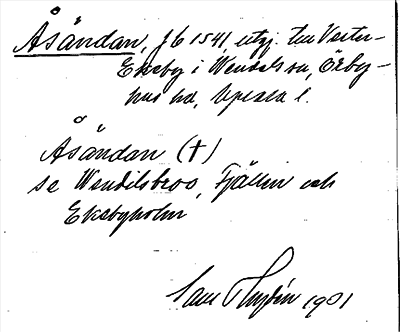 Åsändan, jb 1541, utgj. ten Vester-
Ekeby i Wendels sn, Örby-
hus hd, Upsala l.
Åsändan (†)
se Wendilsbros, Fjällen och
Ekebyholm
1901